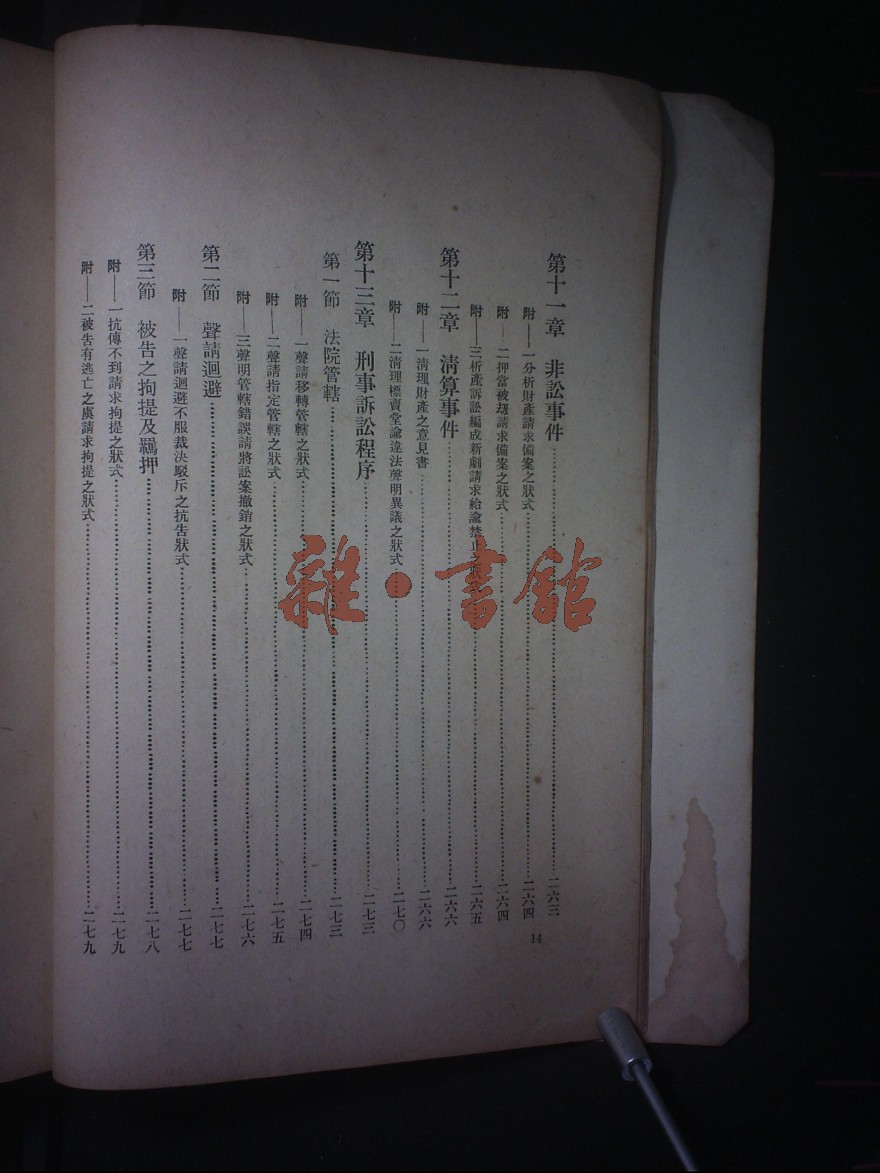 第十一章　非訟事件……二六三
附——一分析財產請求備案之狀式……二六四
附——二押當被刼請求備案之狀式……二六四
附——三析產訴訟編成新劇請求給諭禁止……二六五
第十二章　淸算事件……二六六
附——一淸理財產之意見書……二六六
附——二淸理標賣堂諭違法聲明異議之狀式……二七〇
第十三章　刑事訴訟程序……二七三
第一節　法院管轄……二七三
附——一聲請移轉管轄之狀式……二七四
附——二聲請指定管轄之狀式……二七五
附——三聲明管轄錯誤請將訟案撤銷之狀式……二七六
第二節　聲請迴避……二七七
附——一聲請迴避不服裁決駁斥之抗告狀式……二七七
第三節　被告之拘提及羈押……二七八
附——一抗傳不到請求拘提之狀式……二七九
附——二被告有逃亡之虞請求拘提之狀式……二七九
14
雜·書館